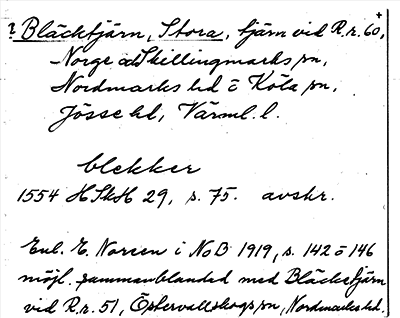 ? Bläcktjärn, Stora, tjärn vid R.r. 60,
Norge och Skillingmarks sn,
Nordmarks hd o Köla sn,
Jösse hd, Värml. l.
blekker
1554 HSkH 29, s. 75. avskr.
Enl. E. Noreen i NoB 1919, s. 142 o 146
möjl. sammanblanded med Bläcketjärn
vid R.r. 51, Östervallskogs sn, Nordmarks hd.